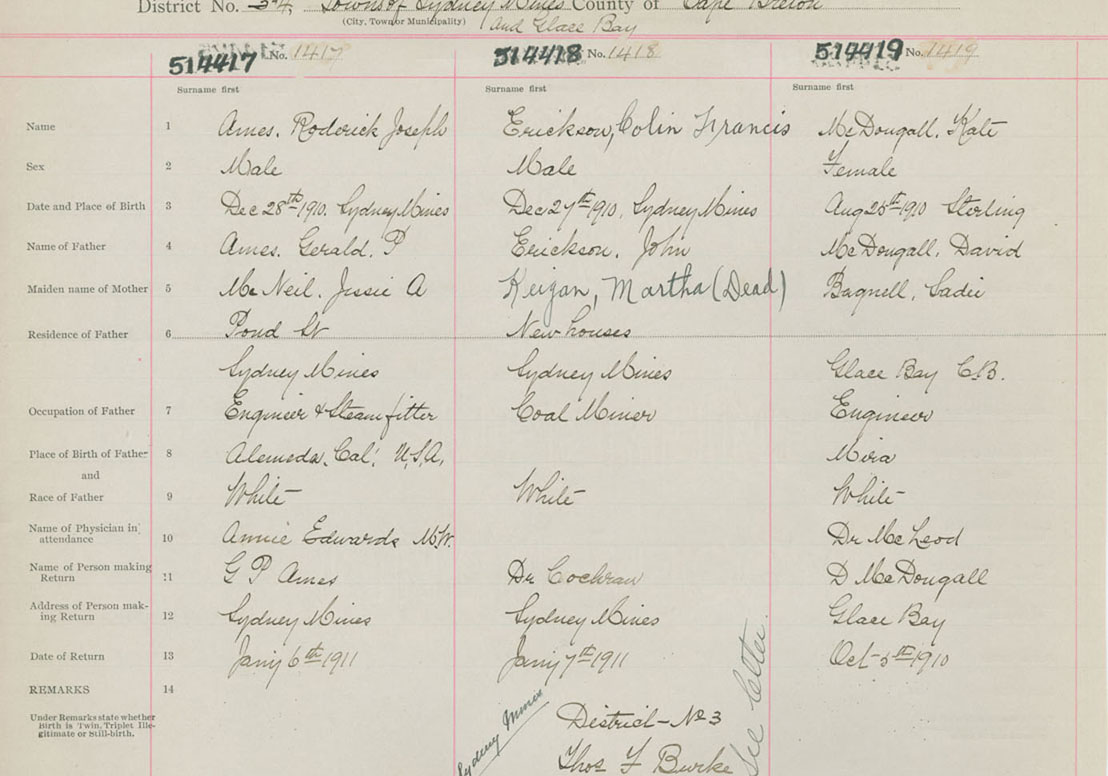 District No. 34, Town of Sydney Mines County of Cape Breton
(City, Town or Municipality) and Glace Bay
514417 No. 1417 514418 No. 1418 514419 No. 1419
Surname first Surname first Surname first
Name 1 Ames, Roderick Joseph Erickson, Colin Francis McDougall, Kate
Sex 2 Male Male Female
Date and Place of Birth 3 Dec 28th 1910. Sydney Mines Dec 27th 1910, Sydney Mines Aug 25th 1910 Sterling
Name of Father 4 Ames. Gerald. P Erickson. John McDougall, David
Maiden name of Mother 5 McNeil. Jessie A Keigan, Martha (Dead) Bagnell, Sadie
Residence of Father 6 Pond St New houses
Sydney Mines Sydney Mines Glace Bay C.B.
Occupation of Father 7 Engineer & Steamfitter Coal Miner Engineer
Place of Birth of Father 8 Alameda, Cal. U.S.A. Mira
and
Race of Father 9 White White White
Name of Physician in
attendance 10 Annie Edwards M.W. Dr McLeod
Name of Person making
Return 11 G P Ames Dr Cochran D McDougall
Address of Person mak-
ing Return 12 Sydney Mines Sydney Mines Glace Bay
Date of Return 13 Jany 6th 1911 Jany 7th 1911 Oct 5th 1910
REMARKS 14
Under Remarks state whether
Birth is Twin, Triplet Ille-
gitimate or Still-birth.
Sydney Mines
District No 3
Thos F Burke
See letter.